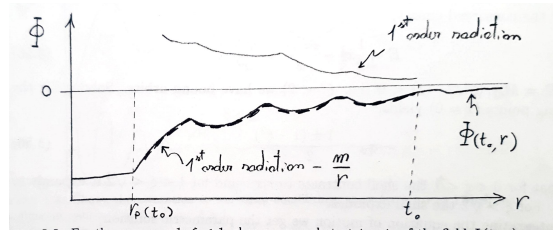 Φ
1st order radiation
0
Φ(t₀, r)
1st order radiation - m/r
rₚ(t₀)
t₀
r